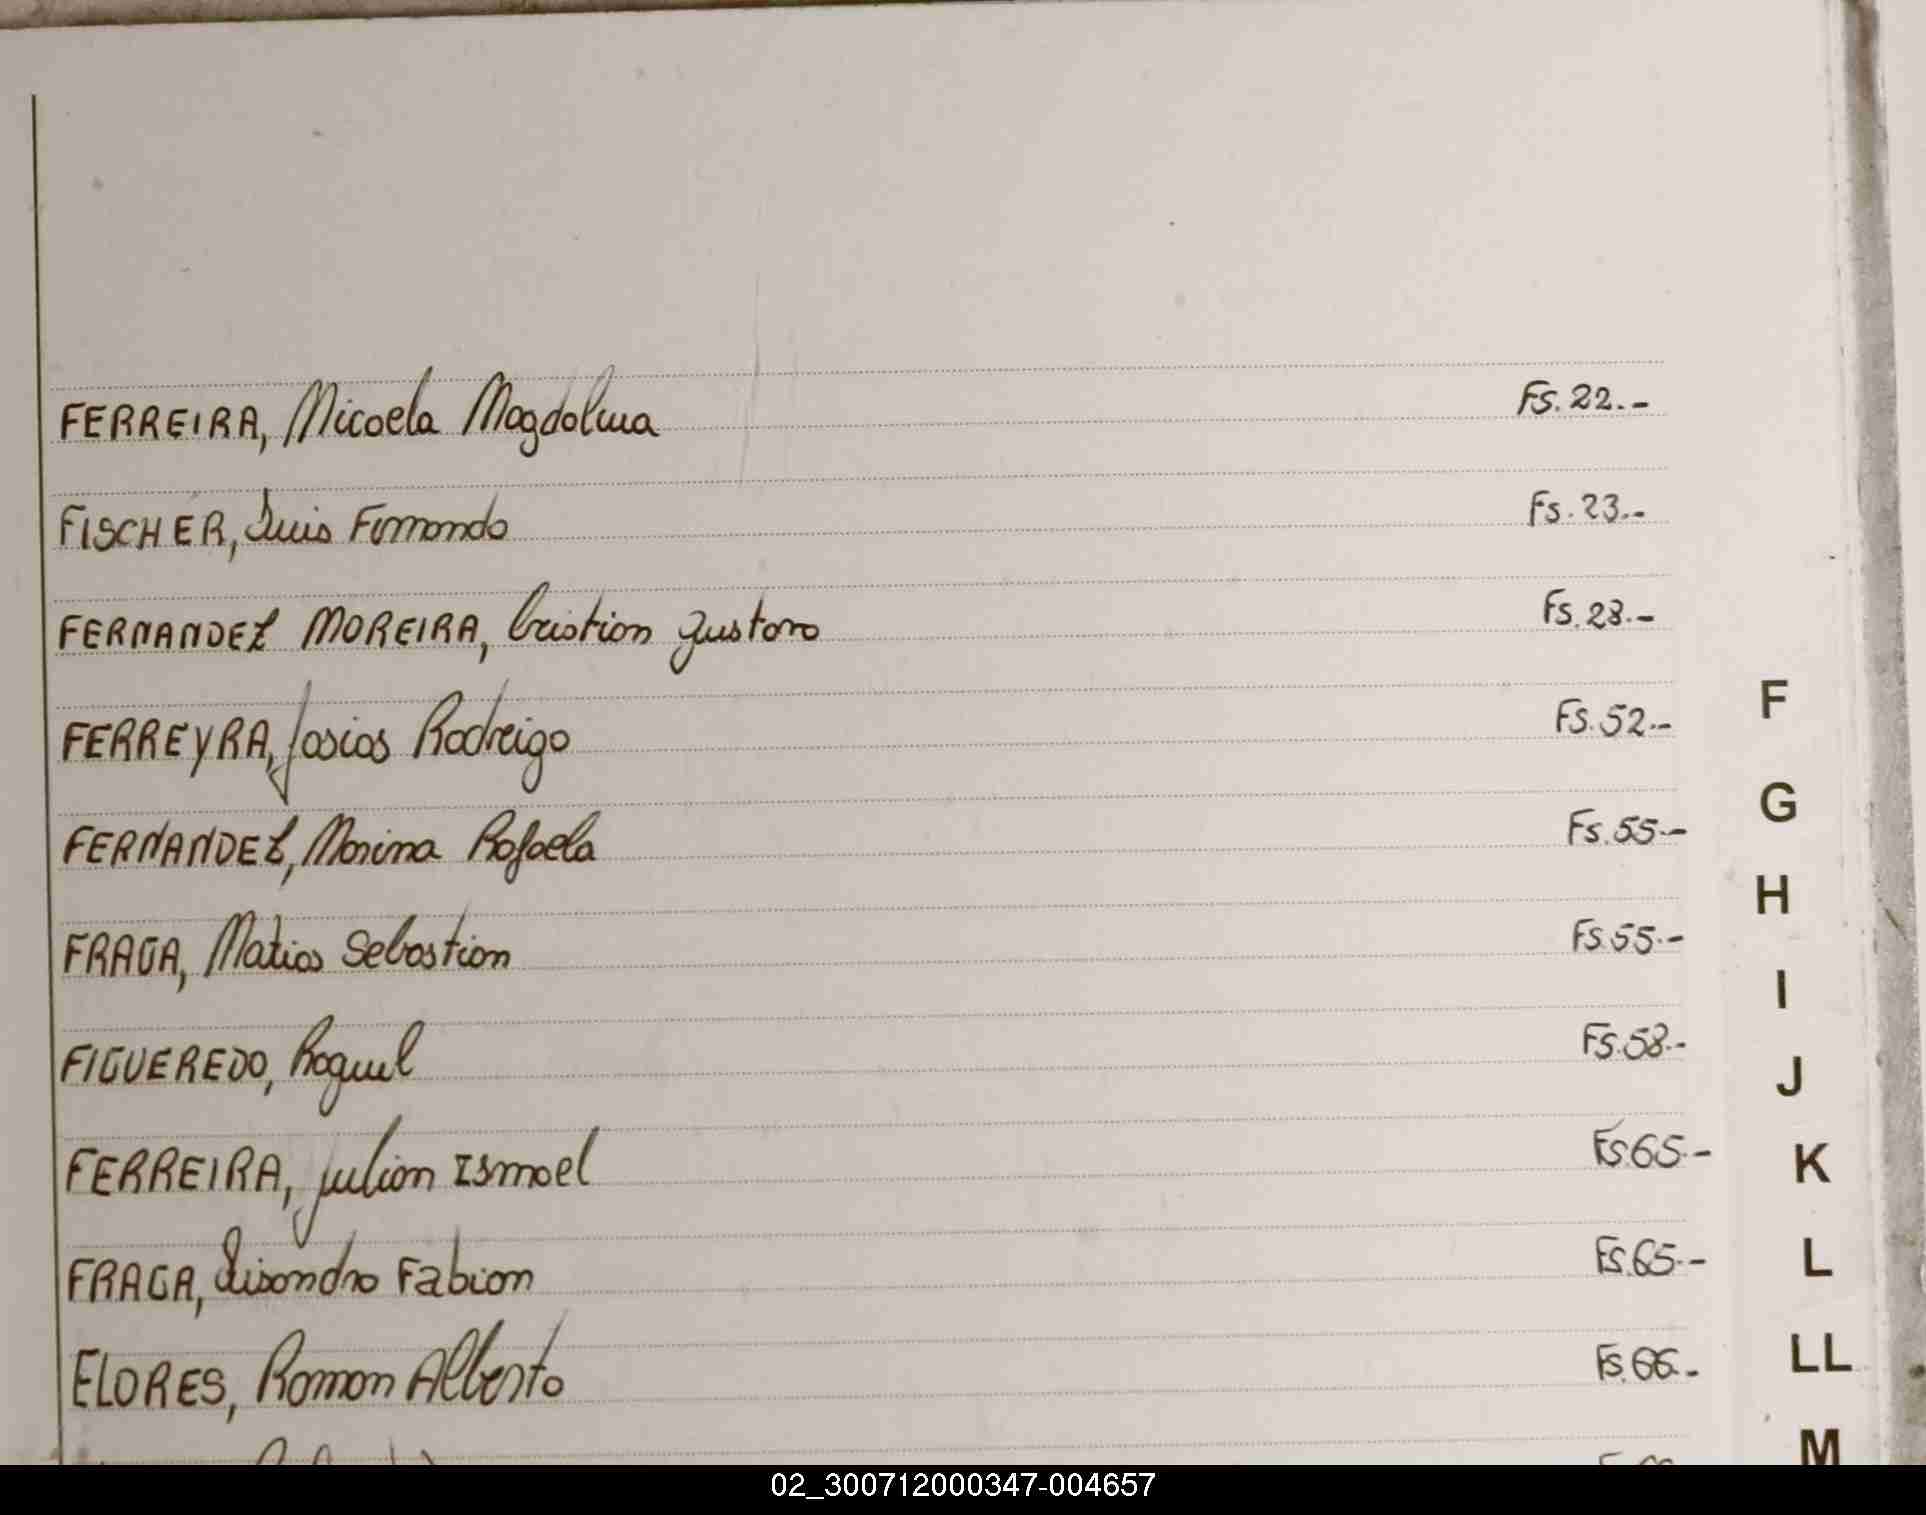 FERREIRA, Micaela Magdalena Fs. 22.-
FISCHER, Luis Fernando Fs. 23.-
FERNANDEZ MOREIRA, Cristian Gustavo Fs. 28.-
FERREYRA, Josias Rodrigo Fs. 52.-
FERNANDEZ, Marina Rafaela Fs. 55.-
FRAGA, Matias Sebastian Fs. 55.-
FIGUEREDO, Raquel Fs. 58.-
FERREIRA, Julian Ismael Fs. 65.-
FRAGA, Lisandro Fabian Fs. 65.-
FLORES, Ramon Alberto Fs. 66.-
F
G
H
I
J
K
L
LL
M
02_300712000347-004657